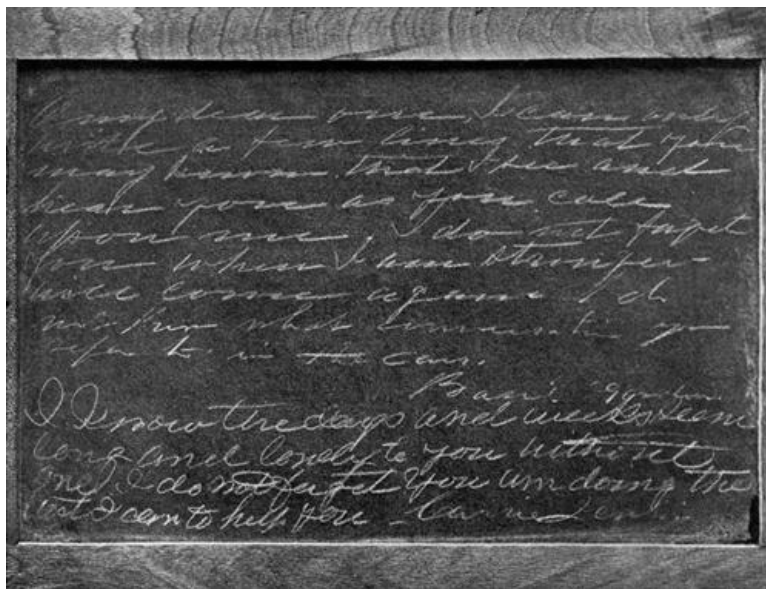 my dear one, I can only
write a few lines that you
may know that I see and
hear you as you call
upon me, I do not forget
you when I am stronger
will come again I do
not know what you
refer to in the case.
I Know the days and weeks seem
long and lonely to you without
me I do not forget you am doing the
best I can to help you Carrie